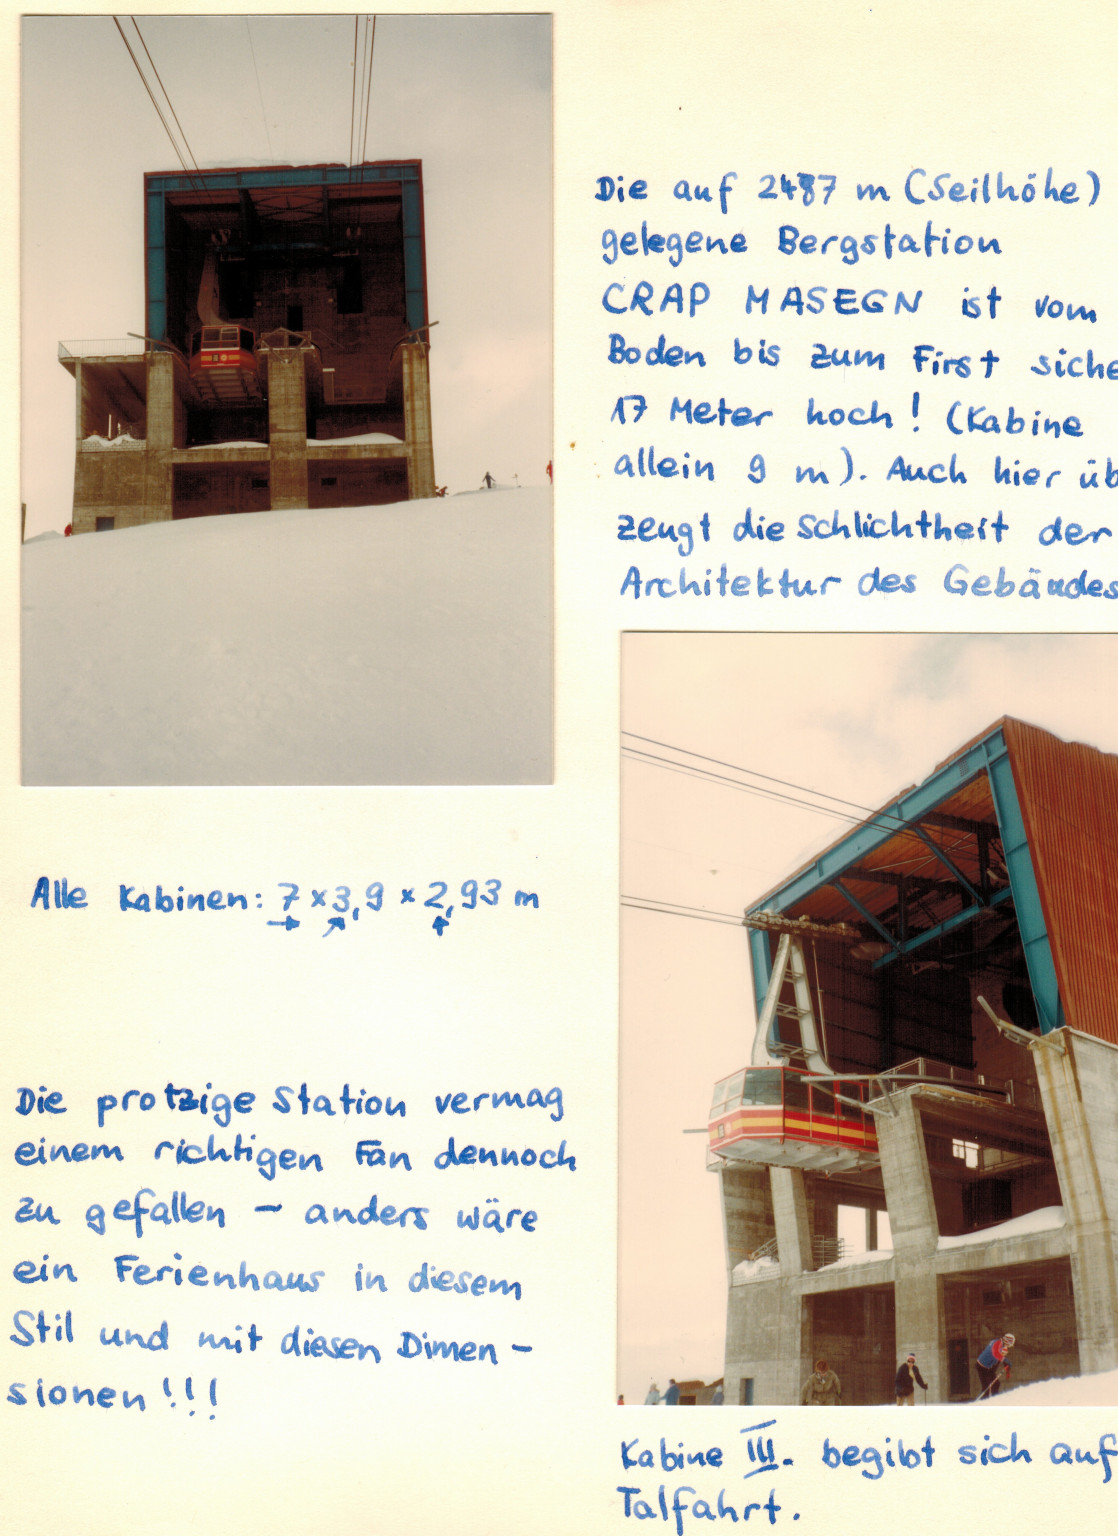 Die auf 2487 m (Seilhöhe)
gelegene Bergstation
CRAP MASEGN ist vom
Boden bis zum First siche
17 Meter hoch! (Kabine
allein 9 m). Auch hier üb
zeugt die Schlichtheit der
Architektur des Gebäudes
Alle Kabinen: 7 x 3,9 x 2,93 m
Die protzige Station vermag
einem richtigen Fan dennoch
zu gefallen – anders wäre
ein Ferienhaus in diesem
Stil und mit diesen Dimen-
sionen!!!
Kabine III. begibt sich auf
Talfahrt.